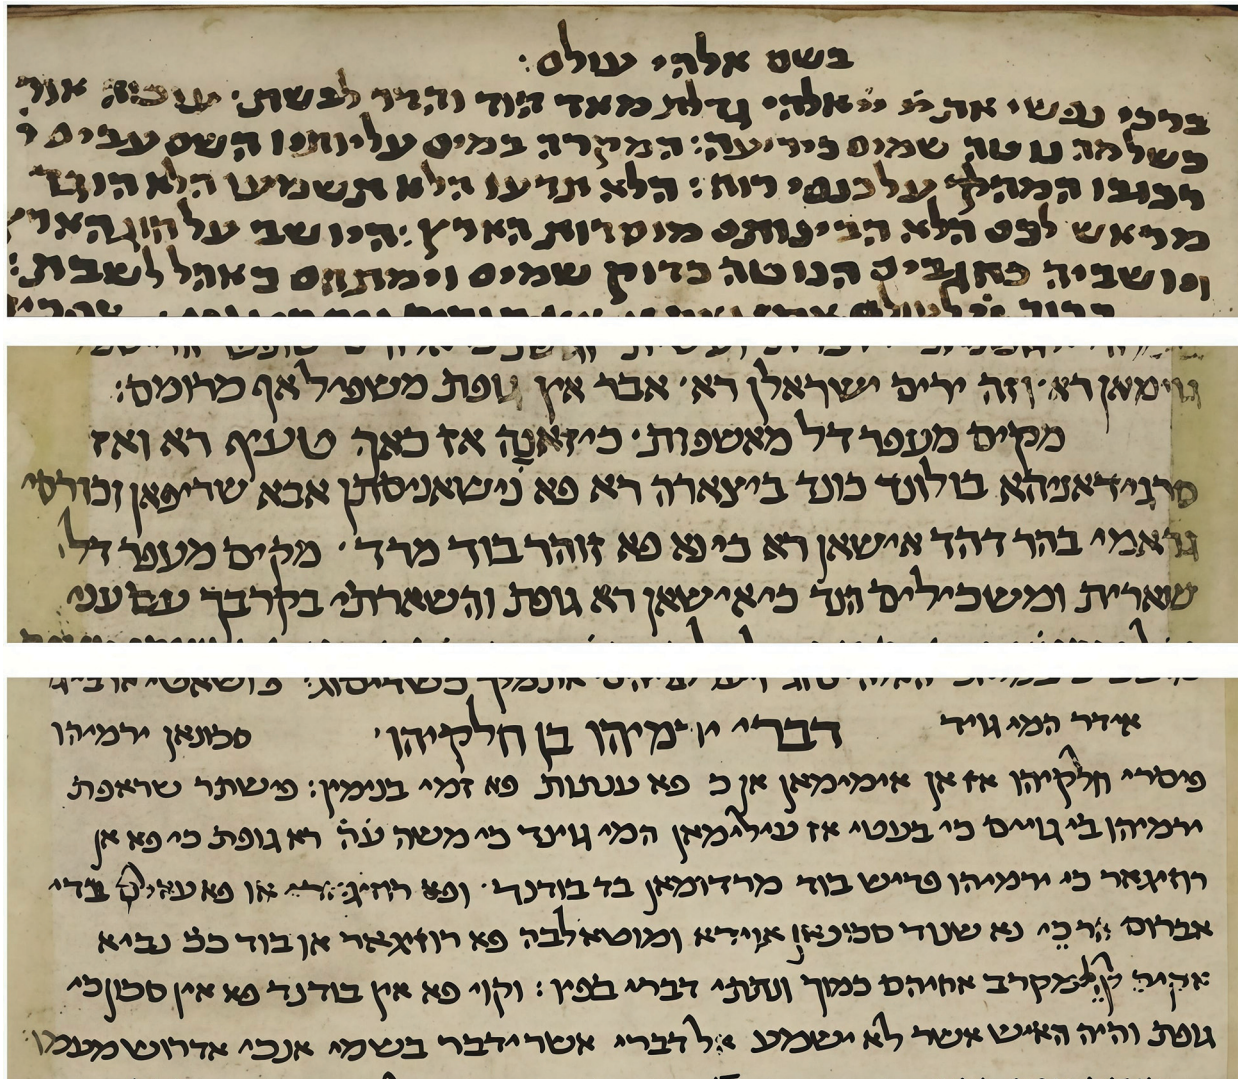 בשם אלהי עולם:
ברכי נפשי את יי אלהי גדלת מאד הוד והדר לבשת. עטה אור
כשלמה נוטה שמים כיריעה: המקרה במים עליותיו השם עבים
רכובו המהלך על כנפי רוח: הלא תדעו הלא תשמעו הלא הוגד
מראש לכם הלא הבינותם מוסדות הארץ: היושב על חוג הארץ
ויושביה כחגבים הנוטה כדוק שמים וימתחם כאהל לשבת:
גוימאן רא. וזה ירים ישראלן רא. אבר אין גופת משפיל אף מרומם:
מקים מעפר דל מאשפות. כיזאנה אז כאך טעיף רא ואז
סרגידאניהא בולונד כונד ביצארה רא פא נישאניסתן אבא שריפאן וכורסי
גראמי בהר דהד אישאן רא כי נא פא זוהר בוד מרד. מקים מעפר דל
שארית ומשכילים הנד כי אישאן רא גופת והשארתי בקרבך עם עני
אידר המי גויד דברי ירמיהו בן חלקיהו. סכונאן ירמיהו
פיסרי חלקיהו אז אן אימימאן אן כ פא ענתות פא זמי בנימין: פישתר שראפת
ירמיהו בי גויים כי בעטי אז עילימאן המי גוינד כי משה ע״ה רא גופת כי פא אן
רוזיגאר כי ירמיהו פדיש בוד מרדומאן בד בודנד. ופא רוזיגארי או פא בדי
נא שנוד סכונאן אוי רא ומוטאלבה פא רוזיגאר אן בוד כב נביא
אקים מקרב אחיהם כמוך ונתתי דברי בפיו: וקוי פא אין בודנד פא אין סכון כי
גופת והיה האיש אשר לא ישמע אל דברי אשר ידבר בשמי אנכי אדרוש מעמו